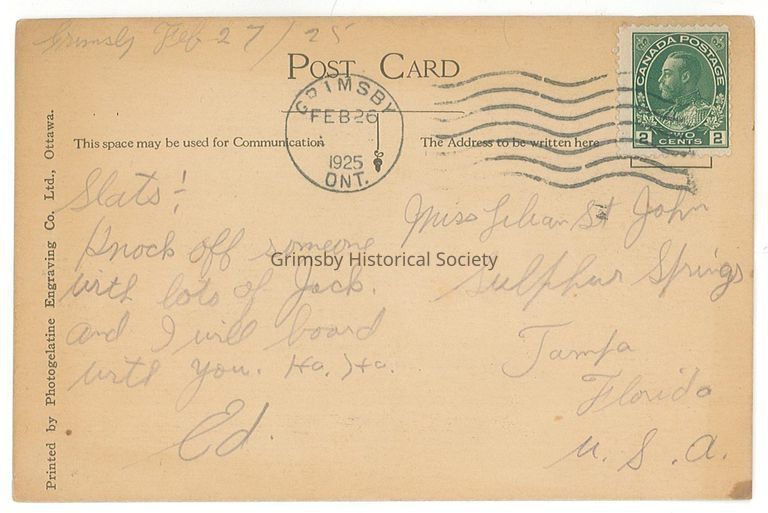 Grimsby Feb 27/25
POST CARD
GRIMSBY
FEB 26
1925
ONT.
CANADA POSTAGE
2 TWO CENTS 2
This space may be used for Communication
The Address to be written here
Slats!
Knock off someone
with lots of Jack.
and I will board
with you. Ha. Ha.
Ed.
Miss Lilian St John
Sulphur Springs
Tampa
Florida
U.S.A.
Grimsby Historical Society
Printed by Photogelatine Engraving Co., Ltd., Ottawa.